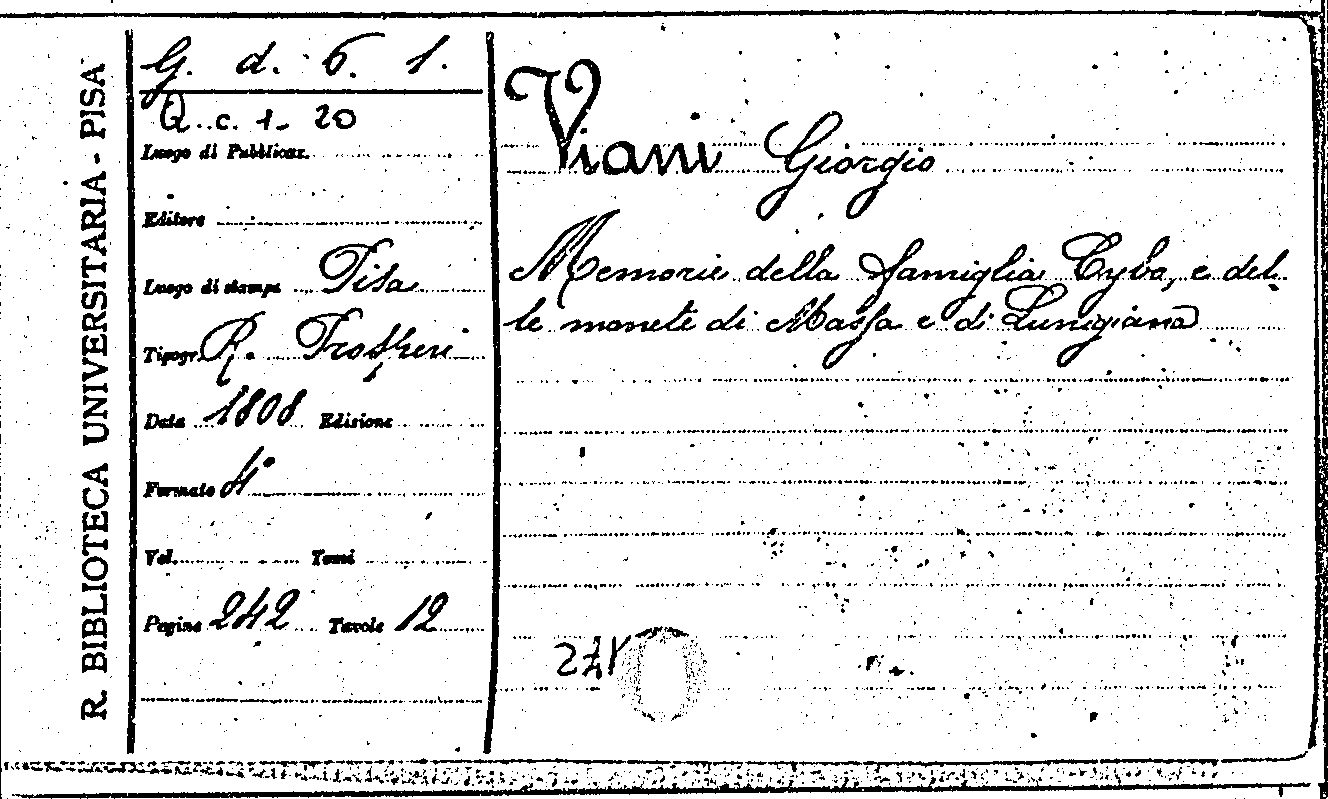 R. BIBLIOTECA UNIVERSITARIA - PISA
G. d. 6. 1.
Q. c. 1 - 20
Luogo di Pubblicaz.
Editore
Luogo di stampa Pisa
Tipogr. R. Prosperi
Data 1808 Edizione
Formato 4°
Vol. Tomi
Pagine 242 Tavole 12
Viani Giorgio
Memorie della famiglia Cybo, e del-
le monete di Massa e di Lunigiana